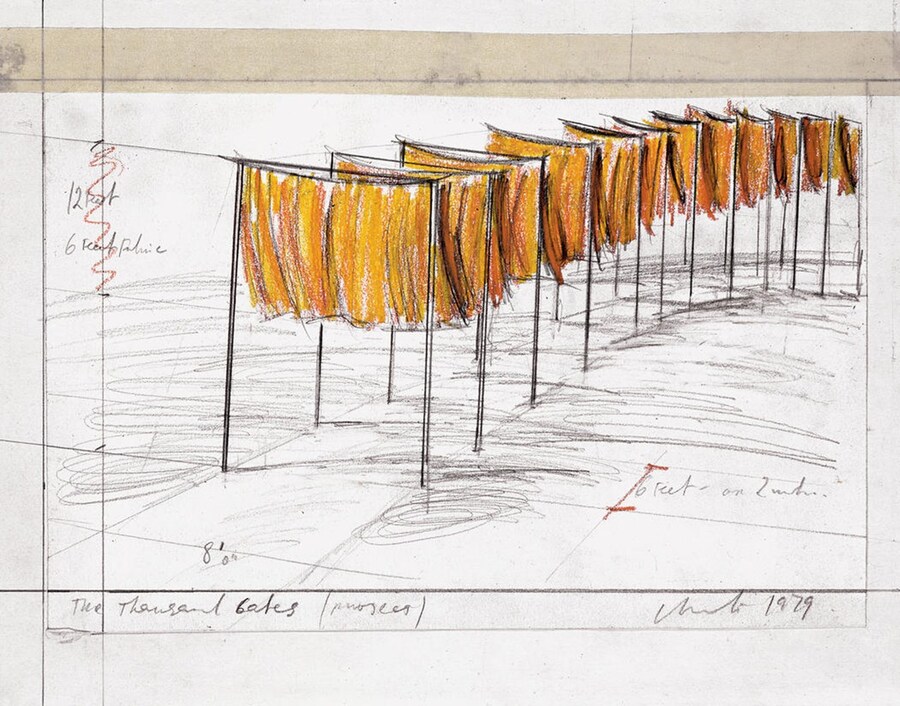 12 feet
6 feet fabric
6 feet - on
8'0"
The Thousand Gates (project)
Christo 1979